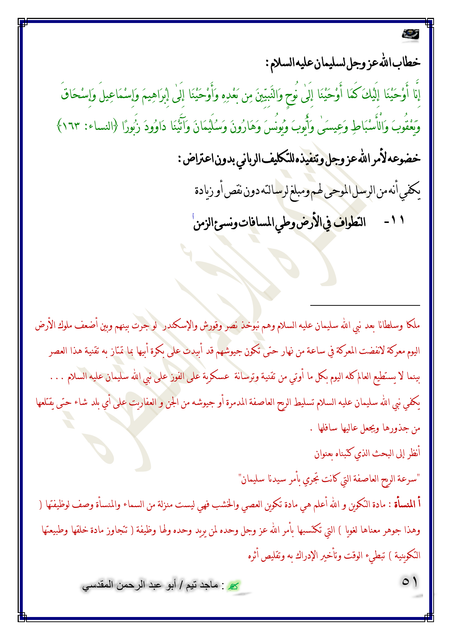 خطاب الله عز وجل لسليمان عليه السلام :
إِنَّا أَوْحَيْنَا إِلَيْكَ كَمَا أَوْحَيْنَا إِلَىٰ نُوحٍ وَالنَّبِيِّينَ مِن بَعْدِهِ وَأَوْحَيْنَا إِلَىٰ إِبْرَاهِيمَ وَإِسْمَاعِيلَ وَإِسْحَاقَ
وَيَعْقُوبَ وَالْأَسْبَاطِ وَعِيسَىٰ وَأَيُّوبَ وَيُونُسَ وَهَارُونَ وَسُلَيْمَانَ وَآتَيْنَا دَاوُودَ زَبُورًا ﴿النساء: ١٦٣﴾
خضوعه لأمر الله عز وجل وتنفيذه للتكليف الرباني بدون اعتراض :
يكفي أنه من الرسل الموحى لهم ومبلغ لرسالته دون نقص أو زيادة
١١- التطواف في الأرض وطي المسافات ونسئ الزمن أ
ملكا وسلطانا بعد نبي الله سليمان عليه السلام وهم نبوخذ نصر وقورش والإسكندر لو جرت بينهم وبين أضعف ملوك الأرض
اليوم معركة لانفضت المعركة في ساعة من نهار حتى تكون جيوشهم قد أبيدت على بكرة أبيها بما تمتاز به تقنية هذا العصر
بينما لا يستطيع العالم كله اليوم بكل ما أوتي من تقنية وترسانة عسكرية على الفوز على نبي الله سليمان عليه السلام . . .
يكفي نبي الله سليمان عليه السلام تسليط الريح العاصفة المدمرة أو جيوشه من الجن و العفاريت على أي بلد شاء حتى يقتلعها
من جذورها ويجعل عاليها سافلها .
أنظر إلى البحث الذي كتبناه بعنوان
"سرعة الريح العاصفة التي كانت تجري بأمر سيدنا سليمان"
أ المنسأة : مادة التكوين و الله أعلم هي مادة تكوين العصي والخشب فهي ليست منزلة من السماء والمنسأة وصف لوظيفتها (
وهذا جوهر معناها لغويا ) التي تكتسبها بأمر الله عز وجل وحده لمن يريد وحده ولها وظيفة ( تتجاوز مادة خلقها وطبيعتها
التكوينية ) تبطيء الوقت وتأخير الإدراك به وتقليص أثره
٥١
: ماجد تيم / أبو عبد الرحمن المقدسي